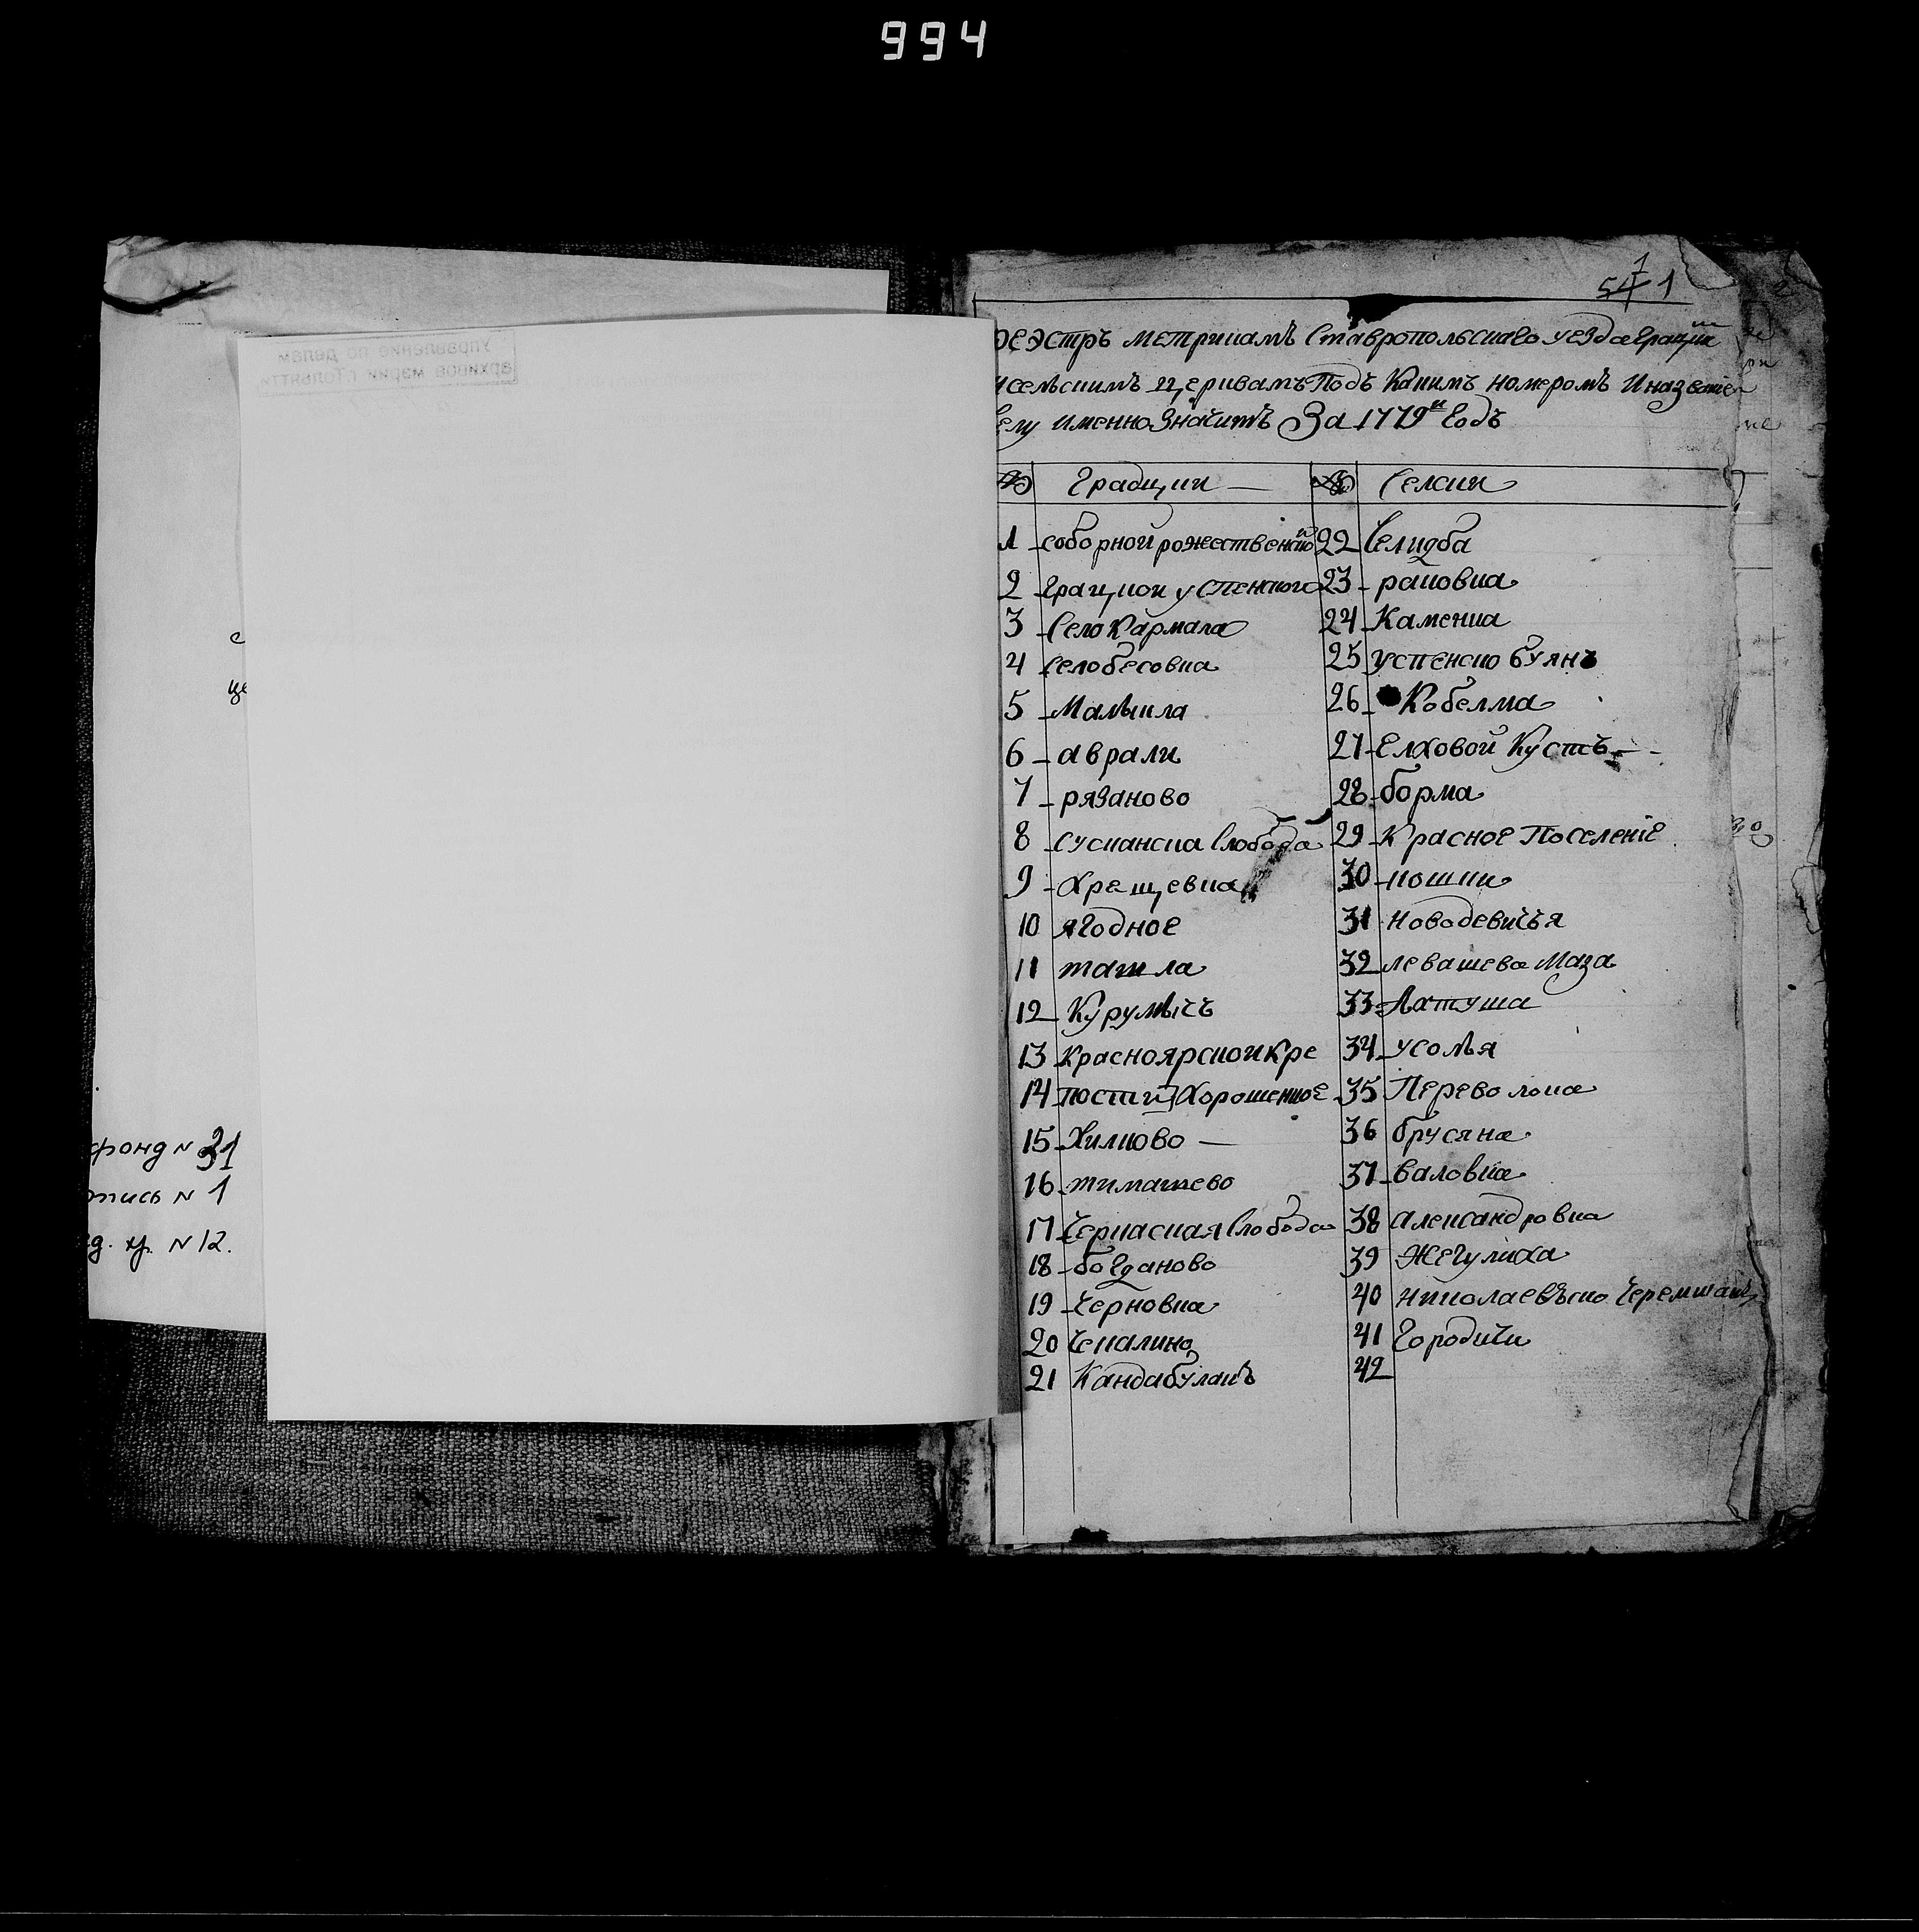 994
управление по делам
архивов мэрии г.Тольятти
с
це
фонд № 31
опись № 1
ед. хр. № 12.
54 1
1
реэстръ метрикамъ Ставропольскаго уезда Грацкимъ
исельскимъ церквамъ Подъ Какимъ номеромъ Иназвание
селу именно Значитъ За 1779й Годъ
№ Градцкии — № Селскии
1 соборной рожественской
2 Грацкои успенского
3 Село Кармала
4 село бесовка
5 Малыкла
6 аврали
7 рязаново
8 сусканска Слобода
9 Хрещевка
10 ягодное
11 ташла
12 Курумычъ
13 Красноярскои Кре
14 пости Хорошенкое
15 Хилково —
16 тимашево
17 Черкаская Слобода
18 богданово
19 Черновка
20 Чекалино
21 Кандабулакъ
22 Селидба
23 раковка
24 Каменка
25 успенско буянъ
26 Кобелма
27 Елховой Кустъ
28 борма
29 Красное Поселение
30 кошки
31 новодевичья
32 левашева Маза
33 Ахтуша
34 усолья
35 Переволока
36 брусяна
37 валовка
38 александровка
39 Жегулиха
40 николаевъско Черемшанъ
41 Городичи
42